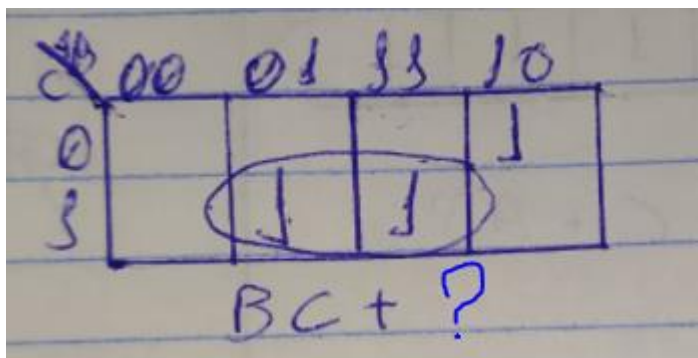 AB
C 00 01 11 10
0 1
1 1 1
BC + ?